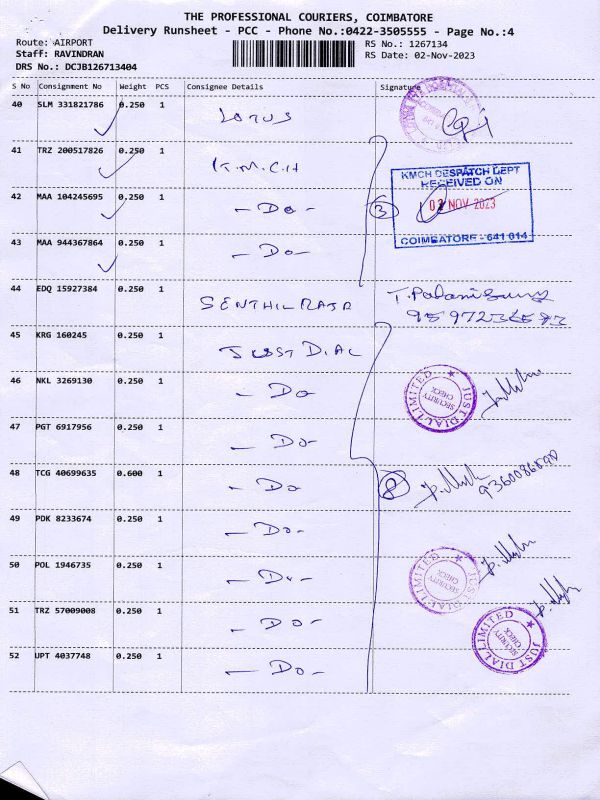 THE PROFESSIONAL COURIERS, COIMBATORE
Delivery Runsheet - PCC - Phone No.:0422-3505555 - Page No.:4
Route: AIRPORT
RS No.: 1267134
Staff: RAVINDRAN
RS Date: 02-Nov-2023
DRS No.: DCJB126713404
S No Consignment No Weight PCS Consignee Details Signature
40 SLM 331821786 0.250 1 LOTUS
41 TRZ 200517826 0.250 1 K.M.C.H
KMCH DESPATCH DEPT
RECEIVED ON
02 NOV 2023
COIMBATORE - 641 014
42 MAA 104245695 0.250 1 - Do - 3
43 MAA 944367864 0.250 1 - Do -
44 EDQ 15927384 0.250 1 SENTHIL RAJA
45 KRG 160245 0.250 1 JUST DIAL
46 NKL 3269130 0.250 1 - Do
JUST DIAL LIMITED
SECURITY
CHECK
47 PGT 6917956 0.250 1 - Do -
48 TCG 40699635 0.600 1 - Do 8
49 PDK 8233674 0.250 1 - Do -
50 POL 1946735 0.250 1 - Do -
JUST DIAL LIMITED
SECURITY
CHECK
51 TRZ 57009008 0.250 1 - Do -
JUST DIAL LIMITED
SECURITY
CHECK
52 UPT 4037748 0.250 1 - Do -